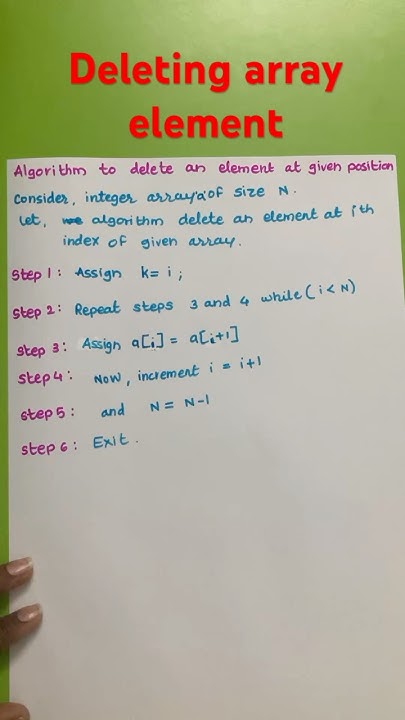 Deleting array
element
Algorithm to delete an element at given position
Consider, integer array 'a' of size N.
Let, algorithm delete an element at ith
index of given array.
Step 1: Assign k= i ;
Step 2: Repeat steps 3 and 4 while (i < N)
Step 3: Assign a[i] = a[i+1]
Step 4: Now, increment i = i+1
Step 5: and N = N-1
Step 6: Exit.